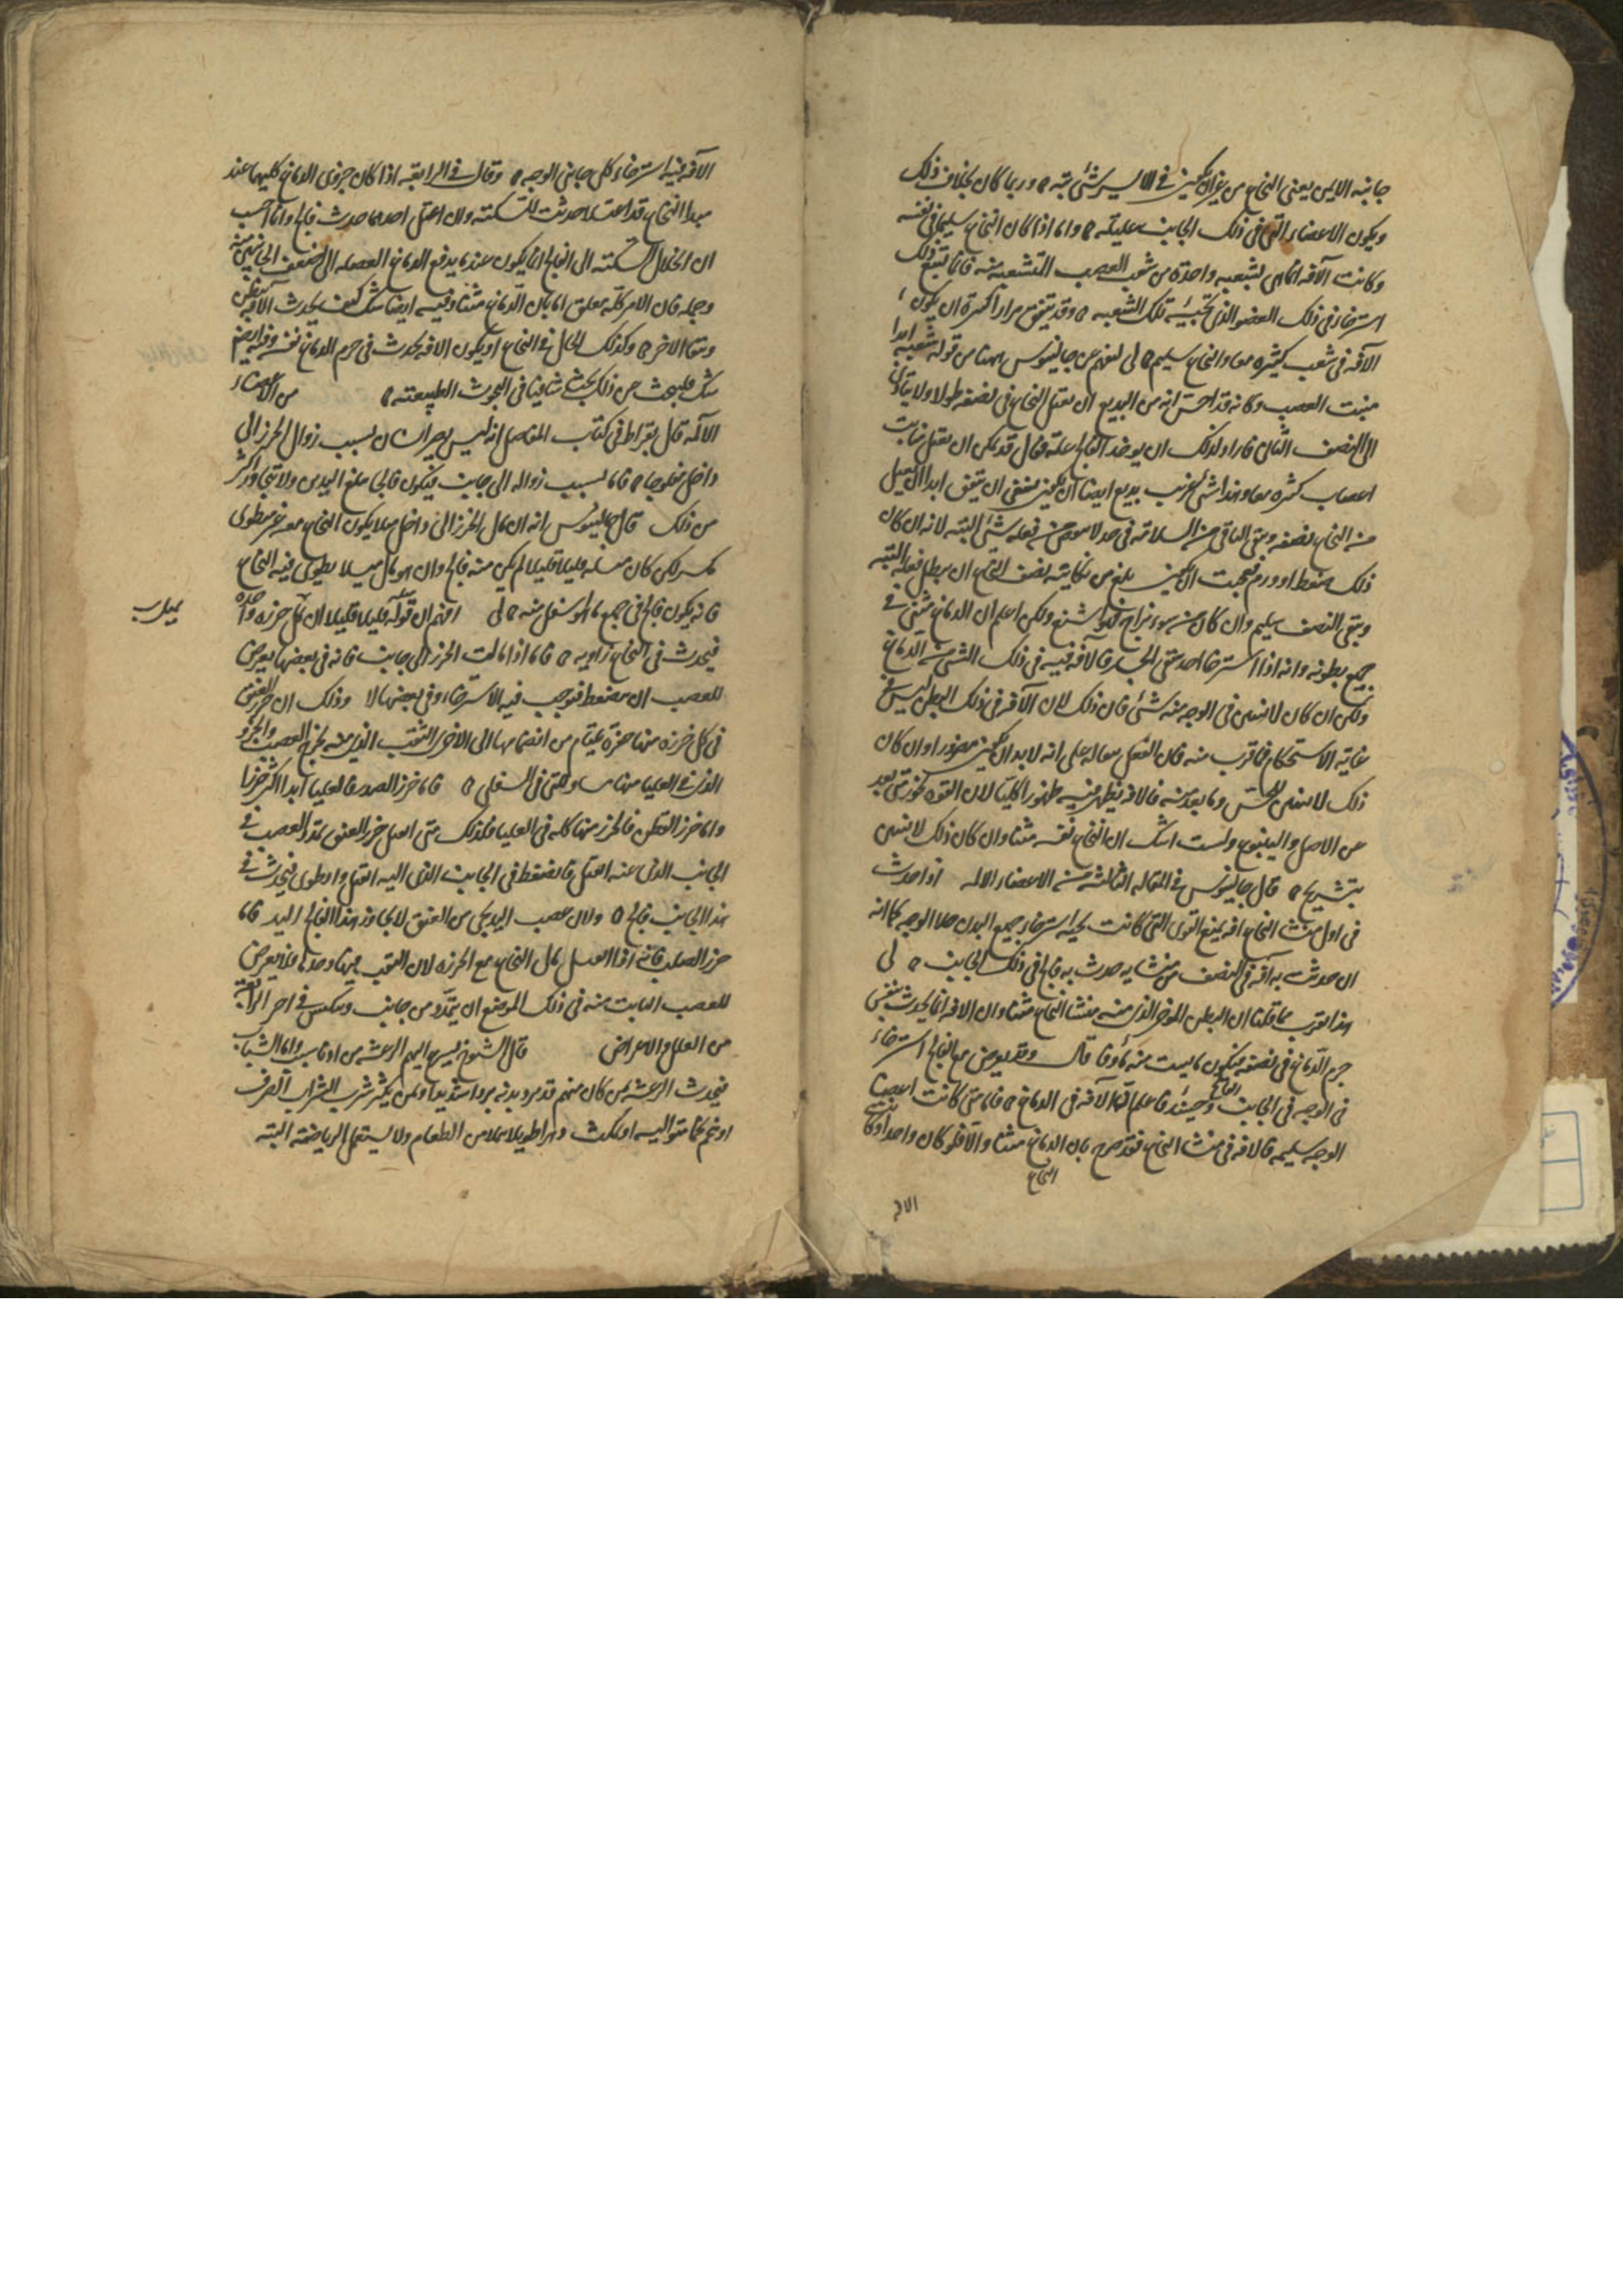 جانبه الايمن يعنى النخاع من غير ان يكون فى الايسر شئ بتة ه وربما كان بخلاف ذلك
ويكون الاعضاء التى فى ذلك الجانب عليلة ه واما اذا كان النخاع سليما فى نفسه
وكانت الآفة انما هى بشعبه واحدة من شعب العصب المتشعبة منه فانما تتبع ذلك
استرخاء فى ذلك العضو الذى تجيئه تلك الشعبه ه وقد يتفق مرارا كثيرة ان يكون
الآفة فى شعب كثيره معا والنخاع سليم ه لى ليفهم عن جالينوس هاهنا من قوله شعبه ابدا
منبت العصب وكانه قد احس انه من البديع ان يعتل النخاع فى نصفه طولا ولا يتادى
الى النصف الثانى فاراد لذلك ان يوجد الفالج علة فقال قد يمكن ان يعتل نبات
اعصاب كثيره معا وهذا شئ غريب بديع ايضا ان يكون ينبغى ان يتفق ابدا ان يعتل
من النخاع نصفه ويبقى الباقى من السلامة فى حد لا من فعله شئ البته لانه ان كان
ذلك ضغطا وورم فعجبت ان يكون بلغ من نكايته نصف النخاع ان يبطل فعله البته
ويبقى النصف سليم وان كان من سوء مزاج فهو اشنع ولكن اعلم ان الدماغ مثنى فى
جميع بطونه وانه اذا استرخا احد شقى الجسد فالآفة فيه فى ذلك الشق من الدماغ
ولكن ان كان لا يتبين فى الوجه منه شئ فان ذلك لان الآفة فى ذلك البطن ليس فى
غاية الاستحكام فما قرب منه فان الفعل على انه لابد ان يكون مضرورا وان كان
ذلك لا يتبين للحس وما بعد منه فالافة يظهر فيه ظهورا كليا لان القوة تخور متى بعد
عن الاصل والينبوع ولست اشك ان النخاع نفسه مثنا وان كان ذلك لا يتبين
بتشريح ه قال جالينوس فى المقالة الثالثة من الاعضاء الالمه اذا حدث
فى اول منشا النخاع افة يمنع القوى التى كانت تجيه استرخا جميع البدن خلا الوجه كما انه
ان حدثت به آفة فى النصف من منشايه حدث به فالج فى ذلك الجانب ه لى
هذا يقرب مما قلنا ان البطن الموخر الذى منه منشا النخاع مثنا وان الافة انما يحدث بنفس
جرم الدماغ فى نصفه فيكون ما ينبت منه ماوفا قال وقد يعرض مع الفالج استرخاء
فى الوجه فى الجانب العالج وحينئذ فاعلم ان الآفة فى الدماغ ه فاما متى كانت اعضا
الوجه سليمه فالافه فى منشا النخاع فقد صرح بان الدماغ مثنا والا فلو كان واحدا وكانت
النخاع
الافه
الآفة فيه استرخاء كل جانبى الوجه ه وقال فى الرابعة اذا كان جزوى الدماغ كليهما عند
مبدا النخاع قد اعتلا حدثت السكتة وان اعتل احدهما حدث فالج وانا احسب
ان انحلال السكتة الى الفالج انما يكون عندما يدفع الدماغ الفضله الى اضعف الجانبين منه
وجمله فان الامر كله معلق اما بان الدماغ مثنا وفيه ايضا شك كيف يحدث الافة بنصف
ويبقا الاخر ه وكذلك الحال فى النخاع او يكون الافة يحدث فى جرم الدماغ نفسه وفيه ايضا
شك فليبحث عن ذلك بحثا شافيا فى البحوث الطبيعية ه من الاعضاء
الآلمه قال بقراط فى كتاب المفاصل انه ليس يصير انسان بسبب زوال الخرز الى
داخل مفلوجا ه فاما بسبب زواله الى جانب فيكون فالج مبلغ اليدين ولا يتجاوز اكثر
من ذلك قال جالينوس انه ان مال الخرز الى داخل ميلا يكون النخاع معه غير مطوى
لكن كان ميله قليلا قليلا لم يكن منه فالج وان هو مال ميلا يطوى فيه النخاع
فانه يكون فالج فى جميع ما هو اسفل منه ه لى افهم ان قوله قليلا قليلا ان يميل خرزة واحده
فيحدث فى النخاع زاويه ه فاما اذا مالت الخرز الى جانب فانه فى بعضها يعرض
للعصب ان ينضغط فيوجب فيه الاسترخاء وفى بعضها لا وذلك ان خرز العنق
فى كل خرزة منها حفرة يلتيام من انضمامها الى الاخرى الثقب الذى منه يخرج العصب والجزو
الذى فى العليا منها مساو للتى فى السفلى ه فاما خرز الصدر فالعليا ابدا اكثر جزا
واما خرز القطن فالجزر منها كله فى العليا فلذلك متى انفتل خرز العنق تمدد العصب فى
الجانب الذى عنه انفتل وانضغط فى الجانب الذى اليه انفتل وانطوى فيحدث فى
هذا الجانب فالج ه ولان عصب اليد يجى من العنق لا يجاوز هذا الفالج اليد فاما
خرز الصلب فانه اذا انفتل مال النخاع مع الخرزه لان الثقب فيها وحدها فلا يعرض
للعصب النابت منه فى ذلك الموضع ان يتمدد من جانب وينكبس فى اخر الرابعة
من العلل والاعراض قال الشيوخ يسرع اليهم الرعشة من ادنا سبب واما الشباب
فيحدث الرعشة بمن كان منهم قد برد بدنه بردا شديدا وبمن يكثر شرب الشراب الصرف
او تخم تخما متواليه او يمكث دهرا طويلا ممتلا من الطعام ولا يستعمل الرياضة البته
يميل ب